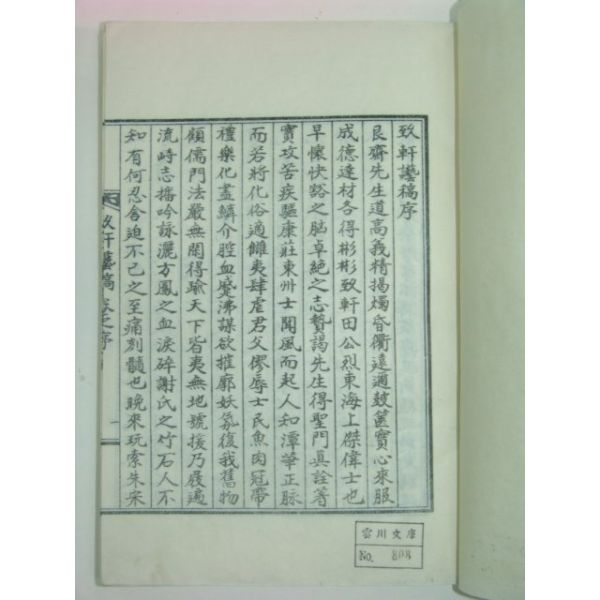 致軒讌稿序
艮齋先生道高義精揭燭昏衢遠邇鼓篋實心來服
成德達材各得彬彬致軒田公烈東海上傑偉士也
早懷快豁之腦卓絶之志贄謁先生得聖門眞詮著
實攻苦疾驅康莊東州士聞風而起人知潭華正脈
而若將化俗適雠夷肆虐君父僇辱士民魚肉冠帶
禮樂化盡鱗介腔血蹙沸謀欲摧廓妖氛復我舊物
顧儒門法嚴無閑得踰天下皆夷無地號援乃屐遍
流峙志播吟詠灑方鳳之血淚碎謝氏之竹石人不
知有何忍舍迫不已之至痛刻髓也晩來玩索朱宋
致軒讌稿 卷之序
一
雲川文庫
No. 808